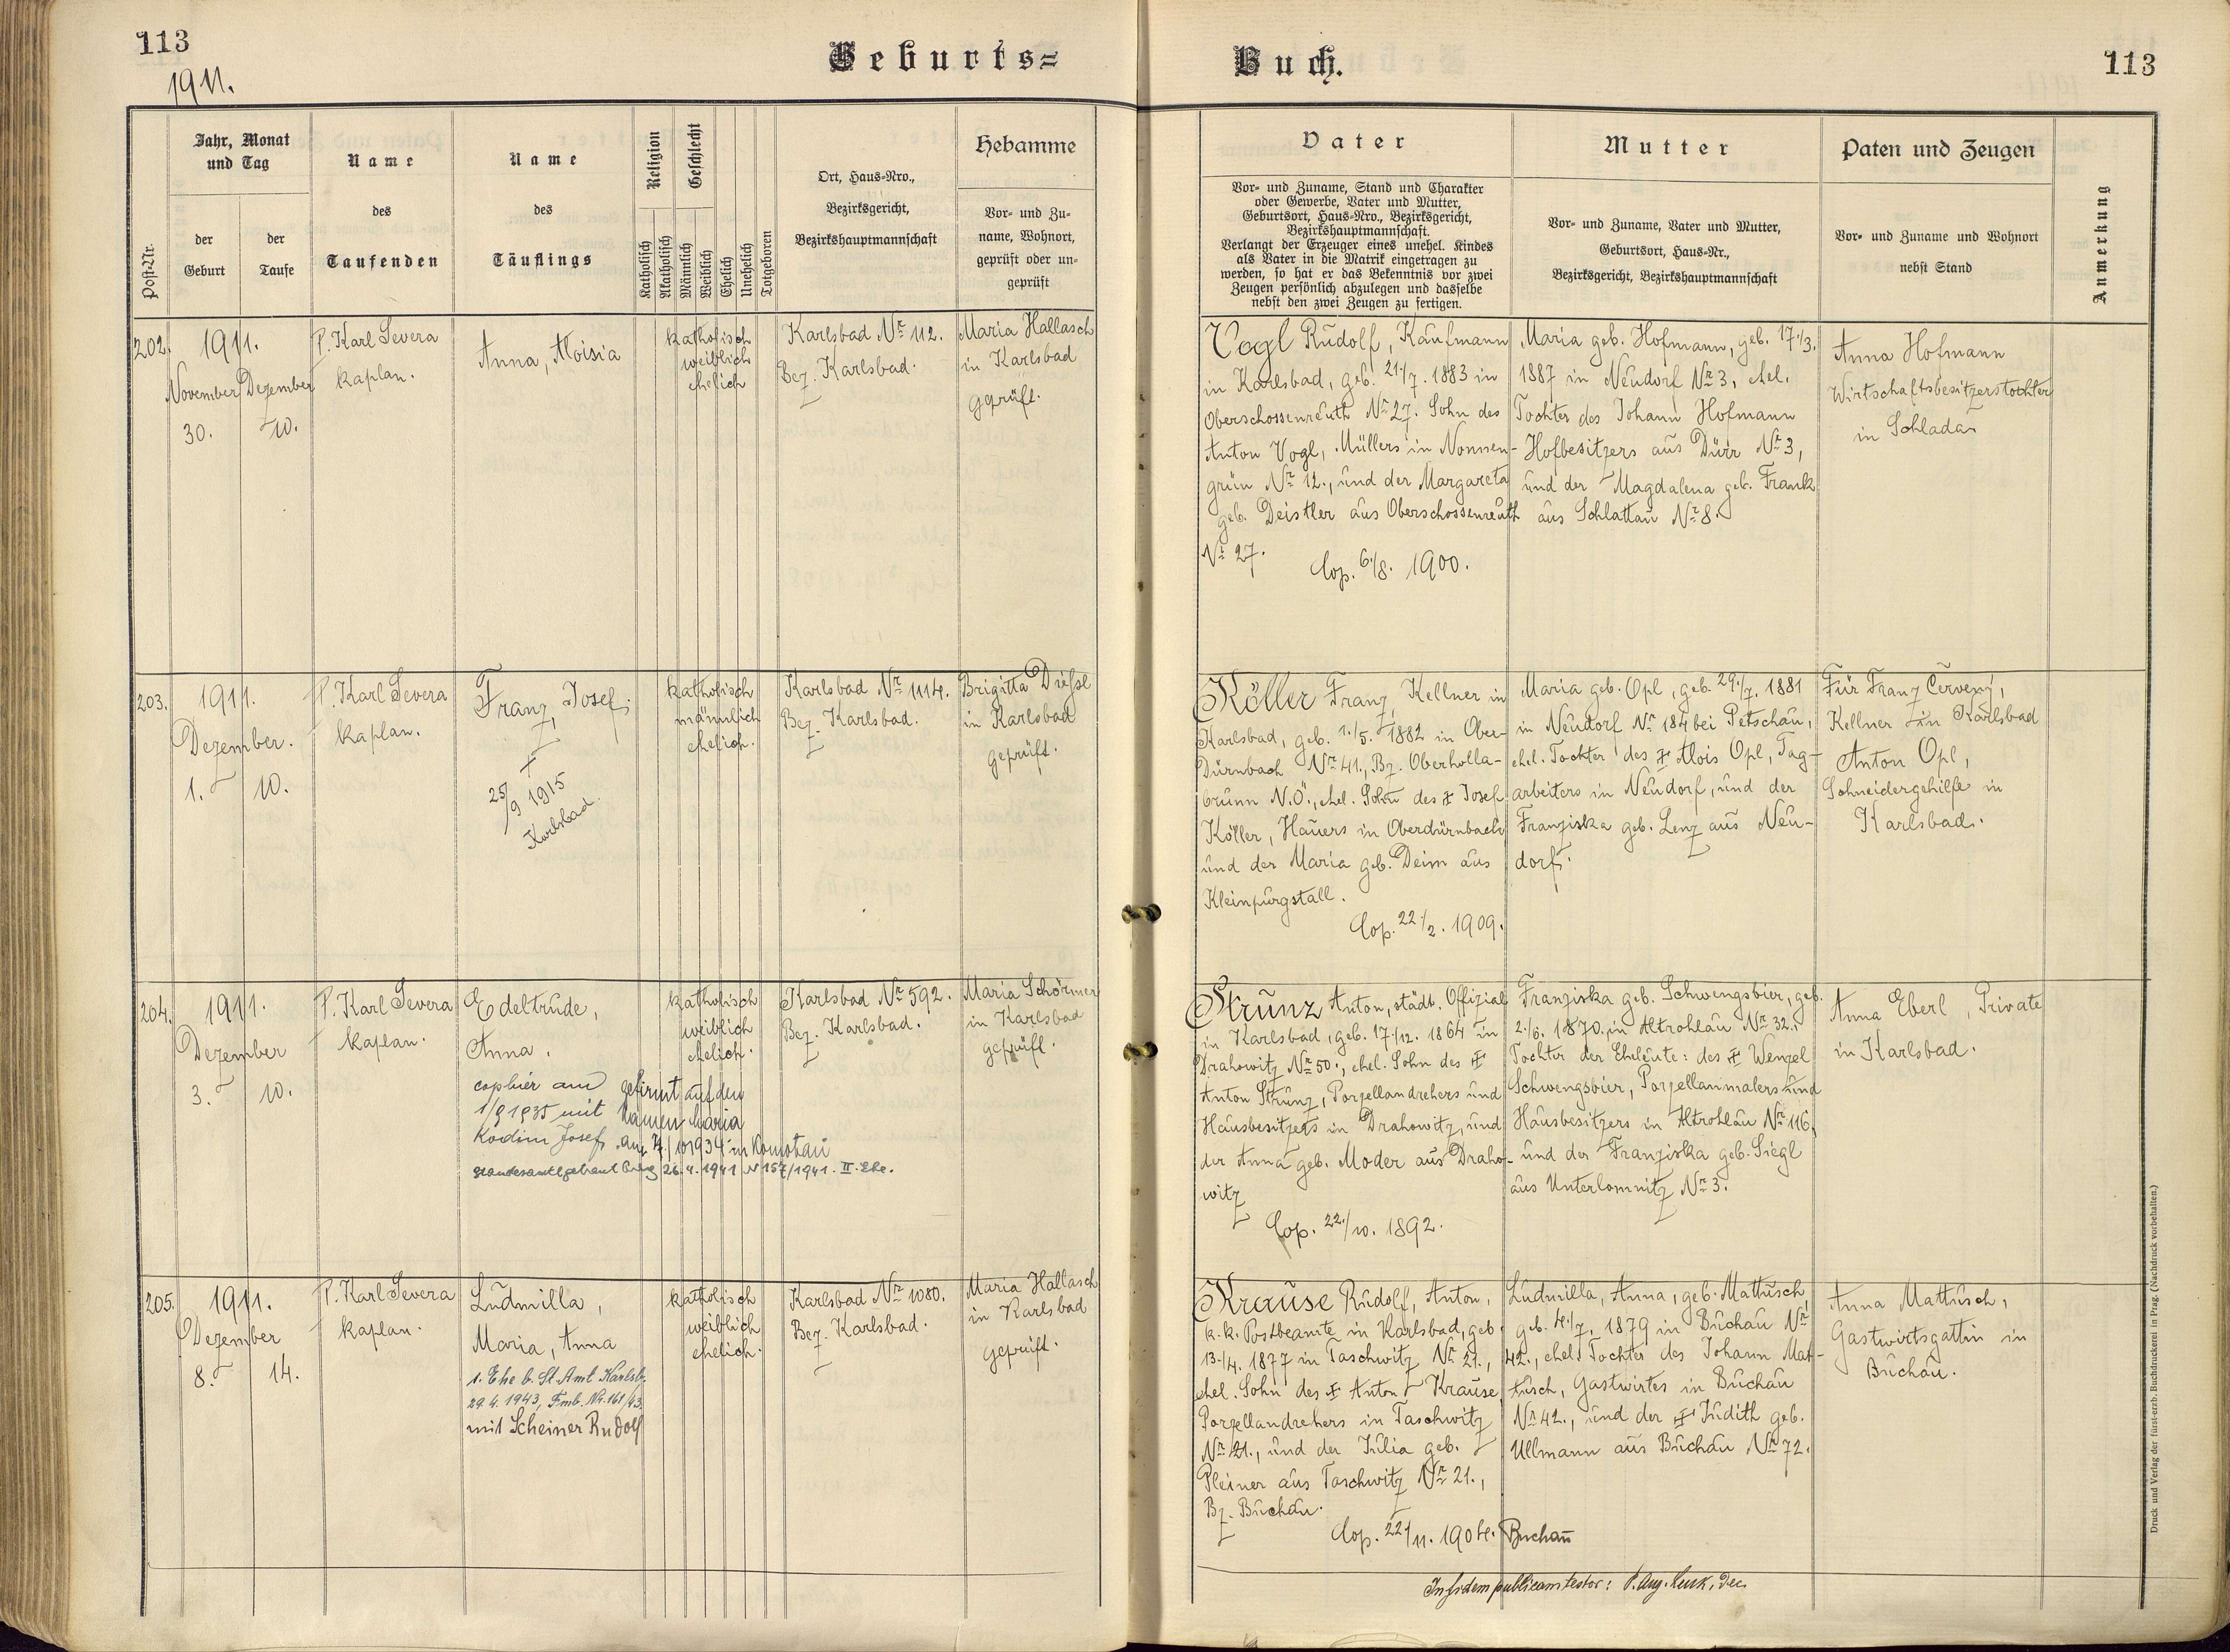 113
1911.
Geburts=
Buch.
113
Post-Nr.
Jahr, Monat
und Tag
der
Geburt
der
Taufe
Name
des
Taufenden
Name
des
Täuflings
Religion
Katholisch
Akatholisch
Geschlecht
Männlich
Weiblich
Ehelich
Unehelich
Totgeboren
Ort, Haus-Nro.,
Bezirksgericht,
Bezirkshauptmannschaft
Hebamme
Vor- und Zu-
name, Wohnort,
geprüft oder un-
geprüft
Vater
Vor- und Zuname, Stand und Charakter
oder Gewerbe, Vater und Mutter,
Geburtsort, Haus-Nro., Bezirksgericht,
Bezirkshauptmannschaft.
Verlangt der Erzeuger eines unehel. Kindes
als Vater in die Matrik eingetragen zu
werden, so hat er das Bekenntnis vor zwei
Zeugen persönlich abzulegen und dasselbe
nebst den zwei Zeugen zu fertigen.
Mutter
Vor- und Zuname, Vater und Mutter,
Geburtsort, Haus-Nr.,
Bezirksgericht, Bezirkshauptmannschaft
Paten und Zeugen
Vor- und Zuname und Wohnort
nebst Stand
Anmerkung
202.
1911.
November
30.
Dezember
10.
P. Karl Severa
Kaplan.
Anna, Aloisia
katholisch
weiblich
ehelich
Karlsbad Nr. 112.
Bez. Karlsbad.
Maria Hallasch
in Karlsbad
geprüft.
Vogl Rudolf, Kaufmann
in Karlsbad, geb. 21./7. 1883 in
Oberschossenreuth Nr. 27. Sohn des
Anton Vogl, Müllers in Nonnen-
grün Nr. 12., und der Margareta
geb. Deistler aus Oberschossenreuth
Nr. 27.
Cop. 6./8. 1900.
Maria geb. Hofmann, geb. 17./3.
1887 in Neudorf Nr. 3, ehel.
Tochter des Johann Hofmann
Hofbesitzers aus Dürr Nr. 3,
und der Magdalena geb. Frank
aus Schlattau Nr. 8.
Anna Hofmann
Wirtschaftsbesitzerstochter
in Schlada
203.
1911.
Dezember.
1. 10.
P. Karl Severa
Kaplan.
Franz, Josef.
†
25/9 1915
Karlsbad.
katholisch
männlich
ehelich.
Karlsbad Nr. 1114.
Bez. Karlsbad.
Brigitta Dießl
in Karlsbad
geprüft.
Köller Franz, Kellner in
Karlsbad, geb. 1./5. 1882 in Ober-
Dürnbach Nr. 41., Bz. Oberholla-
brunn N.Ö., ehel. Sohn des † Josef
Köller, Hauers in Oberdürnbach
und der Maria geb. Deim aus
Kleinpurgstall.
Cop. 22./2. 1909.
Maria geb. Opl, geb. 29./7. 1881
in Neudorf Nr. 184 bei Petschau,
ehel. Tochter des † Alois Opl, Tag-
arbeiters in Neudorf, und der
Franziska geb. Lenz aus Neu-
dorf.
Für Franz Červený,
Kellner in Karlsbad
Anton Opl,
Schneidergehilfe in
Karlsbad.
204.
1911.
Dezember
3. 10.
P. Karl Severa
Kaplan.
Edeltrude,
Anna.
copliert am
1/9 1935 mit
Kodim Josef
gefirmt auf den
Namen Maria
am 7./10 1934 in Komotau
standesamtl. getraut 26.4.1941 N 157/1941. II. Ehe.
katholisch
weiblich
ehelich.
Karlsbad Nr. 592.
Bez. Karlsbad.
Maria Schörner
in Karlsbad
geprüft.
Strunz Anton, städt. Offizial
in Karlsbad, geb. 17./12. 1864 in
Drahowitz Nr. 50., ehel. Sohn des †
Anton Strunz, Porzellandrehers und
Hausbesitzers in Drahowitz, und
der Anna geb. Moder aus Draho-
witz
Cop. 22./10. 1892.
Franziska geb. Schwengsbier, geb.
2./6. 1870. in Altrohlau Nr. 32.,
Tochter der Eheleute: des † Wenzel
Schwengsbier, Porzellanmalers und
Hausbesitzers in Altrohlau Nr. 116,
und der Franziska geb. Siegl
aus Unterlomnitz Nr. 3.
Anna Eberl, Private
in Karlsbad.
205.
1911.
Dezember
8. 14.
P. Karl Severa
Kaplan.
Ludmilla,
Maria, Anna
1. Ehe b. St. Amt Karlsb.
29.4.1943, Fmb. Nr. 161/43.
mit Scheiner Rudolf
katholisch
weiblich
ehelich.
Karlsbad Nr. 1080.
Bez. Karlsbad.
Maria Hallasch
in Karlsbad
geprüft.
Krause Rudolf, Anton,
k.k. Postbeamte in Karlsbad, geb.
13./4. 1877 in Taschwitz Nr. 21.,
ehel. Sohn des † Anton Krause,
Porzellandrehers in Taschwitz
Nr. 21., und der Julia geb.
Pleiner aus Taschwitz Nr. 21.,
Bz. Buchau.
Cop. 22./11. 1904. Buchau
Ludmilla, Anna, geb. Mattusch,
geb. 4./7. 1879 in Buchau Nr.
42., ehel. Tochter des Johann Mat-
tusch, Gastwirtes in Buchau
Nr. 42., und der † Judith geb.
Ullmann aus Buchau Nr. 72.
Anna Mattusch,
Gastwirtsgattin in
Buchau.
In fidem publicam testor: P. Aug. Lenk, Dec.
Druck und Verlag der fürst-erzb. Buchdruckerei in Prag. (Nachdruck vorbehalten.)